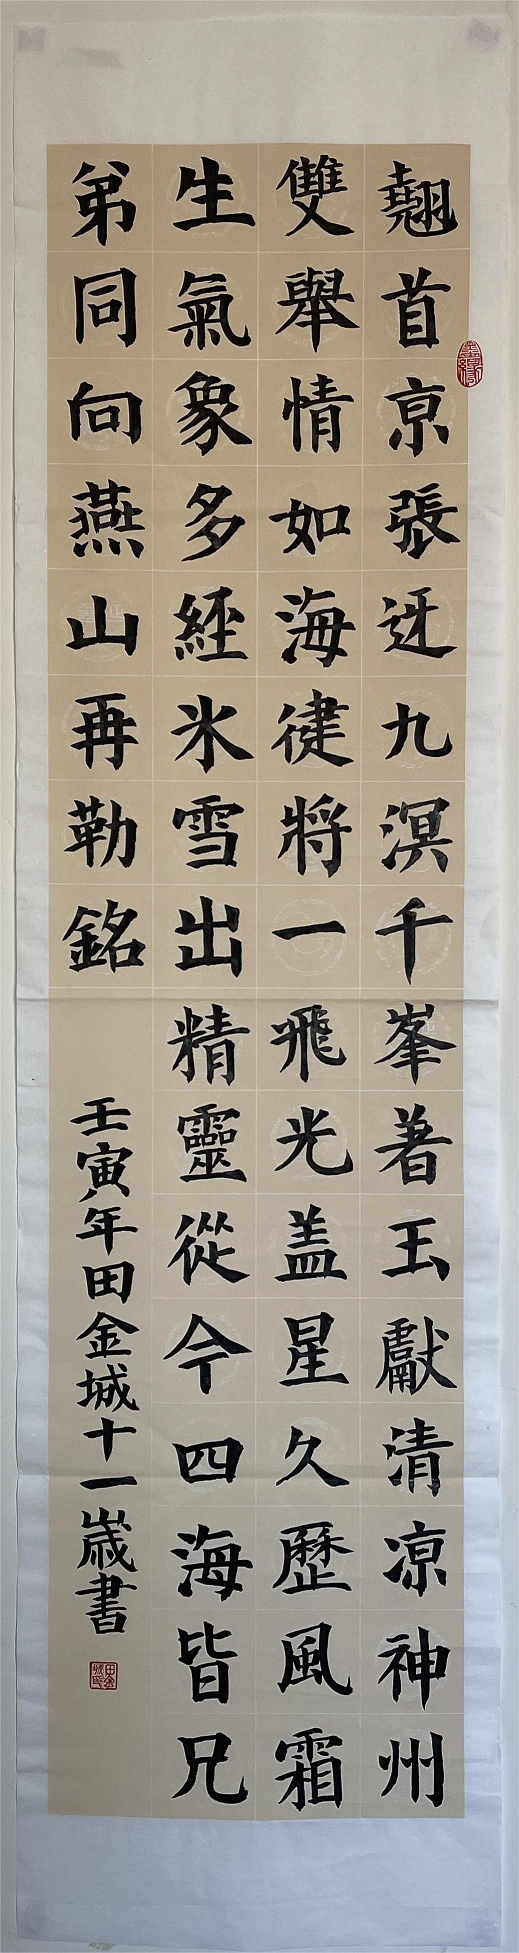 翹首京張迓九溟千峯着玉獻清凉神州
雙舉情如海健將一飛光盖星久歷風霜
生氣象多經氷雪出精靈從今四海皆兄
弟同向燕山再勒銘
壬寅年田金城十一歲書